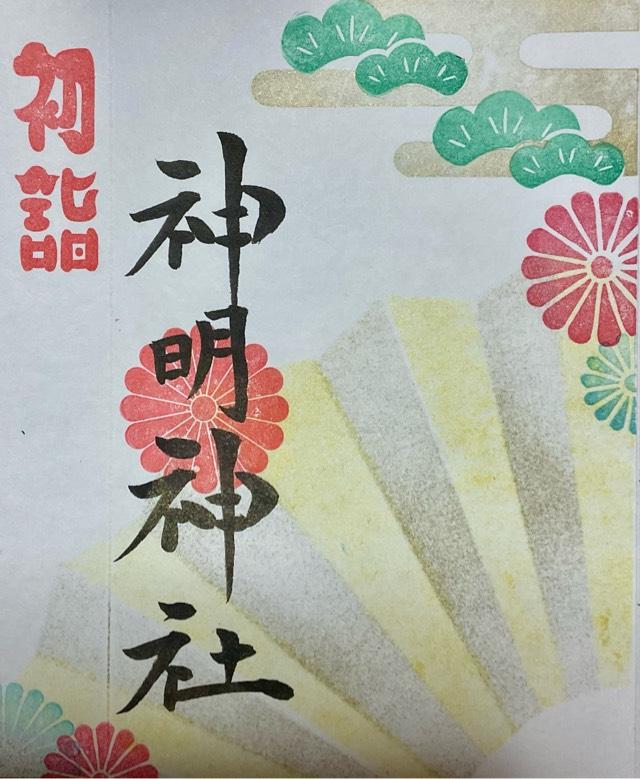 初詣
神明神社